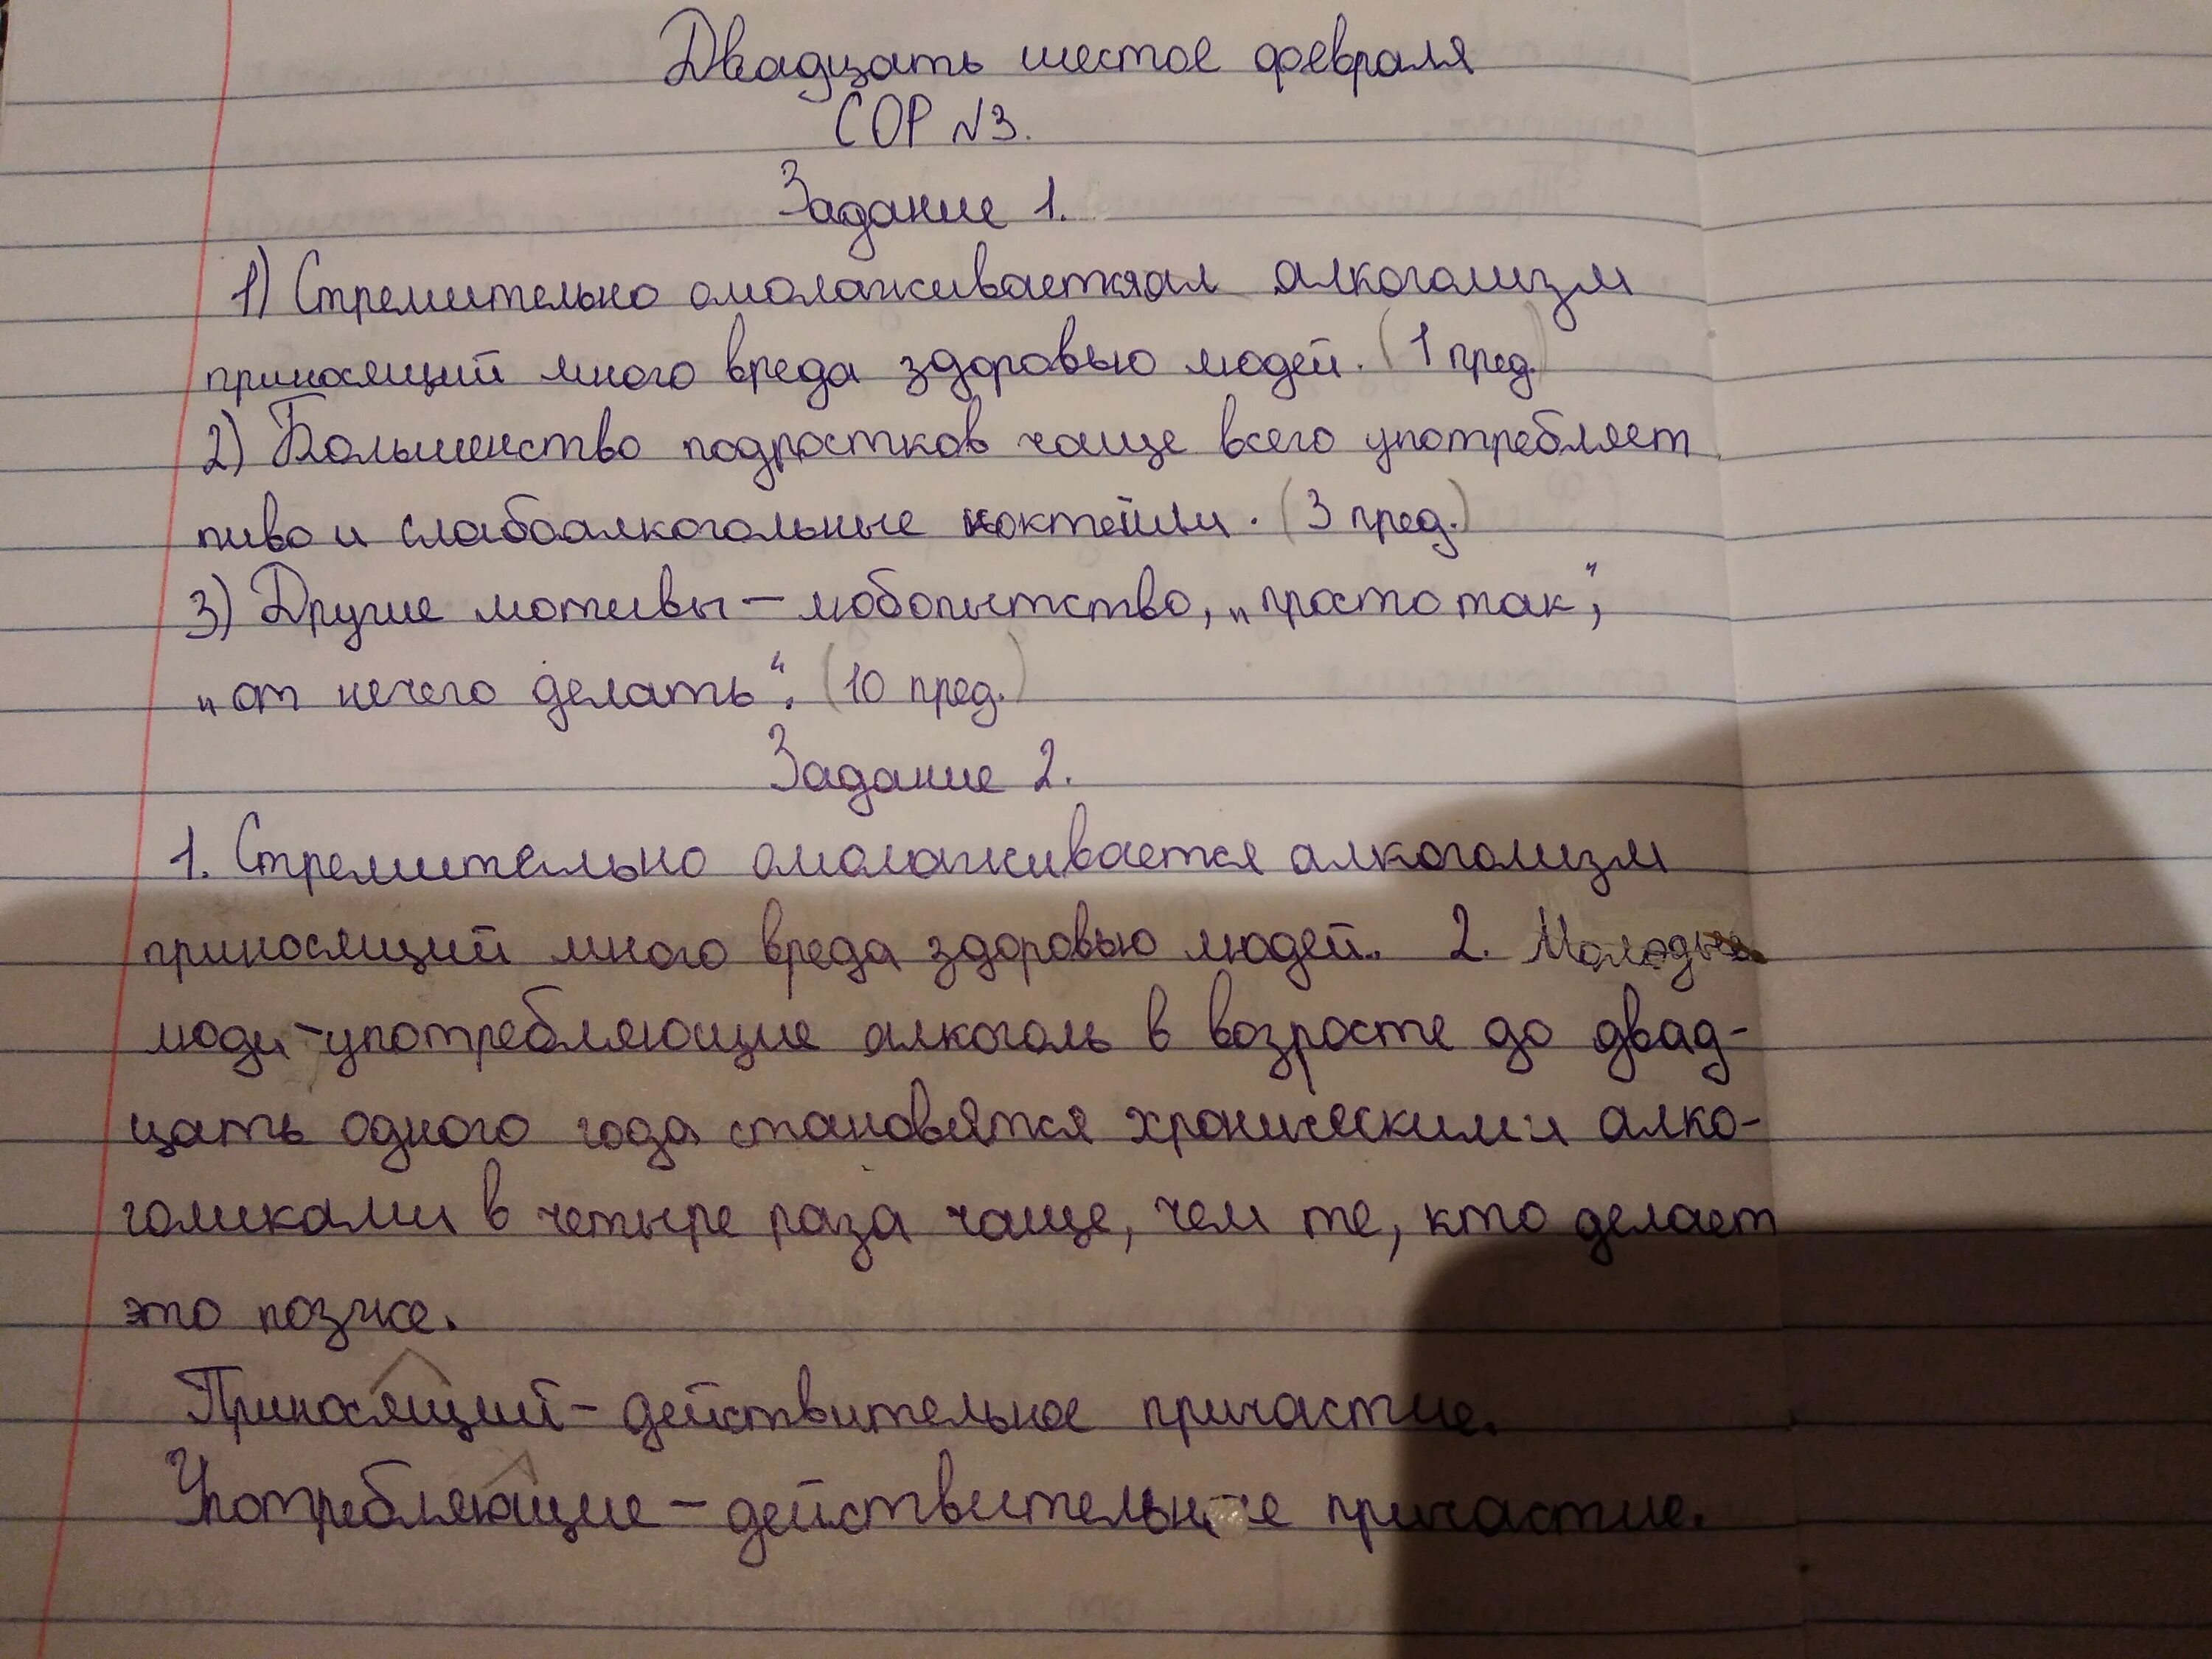 Двадцать шестое февраля
СОР №3.
Задание 1.
1) Стремительно омолаживается алкоголизм
приносящий много вреда здоровью людей. (1 пред.)
2) Большенство подростков чаще всего употребляет
пиво и слабоалкогольные коктейли. (3 пред.)
3) Другие мотивы — любопытство, „просто так“,
„от нечего делать“. (10 пред.)
Задание 2.
1. Стремительно омолаживается алкоголизм
приносящий много вреда здоровью людей. 2. Молодые
люди - употребляющие алкоголь в возросте до двад-
цать одного года становятся хроническими алко-
голиками в четыре раза чаще, чем те, кто делает
это позже.
Приносящий - действительное причастие.
Употребляющие - действительное причастие.